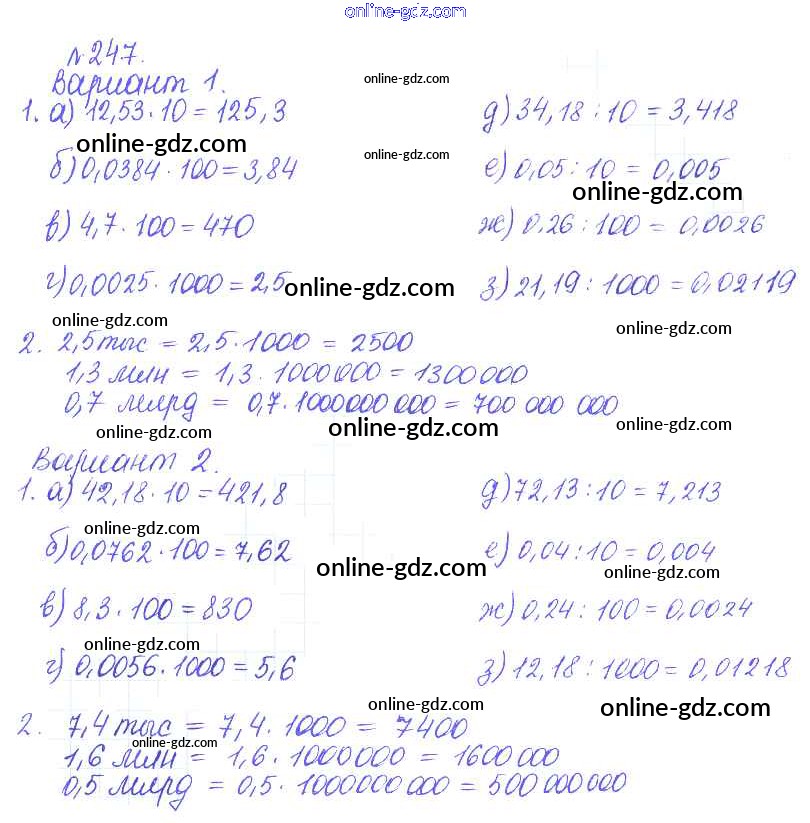 online-gdz.com
№247.
Вариант 1.
online-gdz.com
1. а) 12,53·10=125,3
д) 34,18:10=3,418
online-gdz.com
online-gdz.com
б) 0,0384·100=3,84
е) 0,05:10=0,005
online-gdz.com
в) 4,7·100=470
ж) 0,26:100=0,0026
г) 0,0025·1000=2,5
online-gdz.com
з) 21,19:1000=0,02119
online-gdz.com
online-gdz.com
2. 2,5 тыс = 2,5·1000 = 2500
1,3 млн = 1,3·1000000 = 1300000
0,7 млрд = 0,7·1000000000 = 700 000 000
online-gdz.com
online-gdz.com
online-gdz.com
Вариант 2.
1. а) 42,18·10=421,8
д) 72,13:10=7,213
online-gdz.com
б) 0,0762·100=7,62
е) 0,04:10=0,004
online-gdz.com
online-gdz.com
в) 8,3·100=830
ж) 0,24:100=0,0024
online-gdz.com
г) 0,0056·1000=5,6
з) 12,18:1000=0,01218
online-gdz.com
online-gdz.com
2. 7,4 тыс = 7,4·1000 = 7400
online-gdz.com
1,6 млн = 1,6·1000000 = 1600000
0,5 млрд = 0,5·1000000000 = 500000000